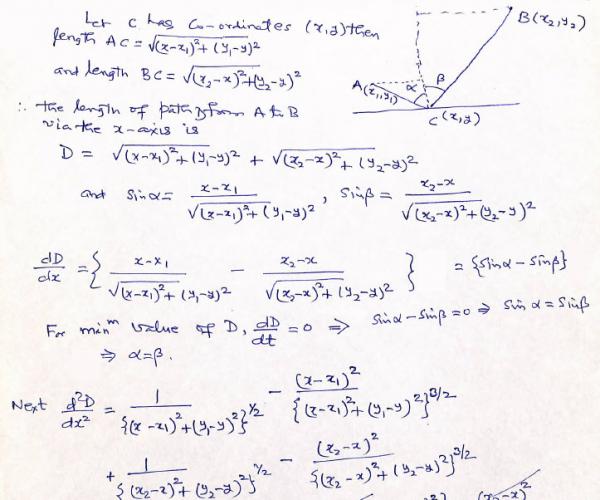 Let C has Co-ordinates (x,y) then
length AC = √(x-x₁)²+(y₁-y)²
and length BC = √(x₂-x)²+(y₂-y)²
B(x₂,y₂)
A(x₁,y₁)
α
β
C(x,y)
∴ the length of path from A to B
via the x-axis is
D = √(x-x₁)²+(y₁-y)² + √(x₂-x)²+(y₂-y)²
and sinα = x-x₁ / √(x-x₁)²+(y₁-y)² , sinβ = x₂-x / √(x₂-x)²+(y₂-y)²
dD/dx = { x-x₁ / √(x-x₁)²+(y₁-y)² - x₂-x / √(x₂-x)²+(y₂-y)² } = {sinα-sinβ}
For minᵐ value of D, dD/dt = 0 ⇒ sinα-sinβ=0 ⇒ sinα=sinβ
⇒ α=β.
Next d²D/dx² = 1 / {(x-x₁)²+(y₁-y)²}^1/2 - (x-x₁)² / {(x-x₁)²+(y₁-y)²}^3/2
+ 1 / {(x₂-x)²+(y₂-y)²}^1/2 - (x₂-x)² / {(x₂-x)²+(y₂-y)²}^3/2